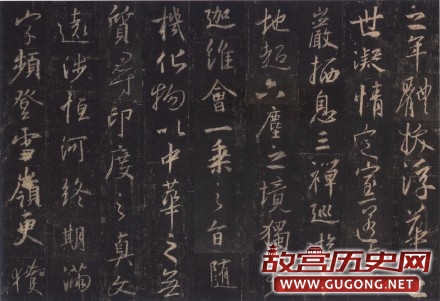 之年體拔浮華
世凝情定室匿
巖栖息三禪巡遊
地超六塵之境獨
迦維會一乘之旨隨
機化物以中華之無
質尋印度之真文
遠涉恒河終期滿
字頻登雪嶺更獲
故宫历史网
WWW.GUGONG.NET